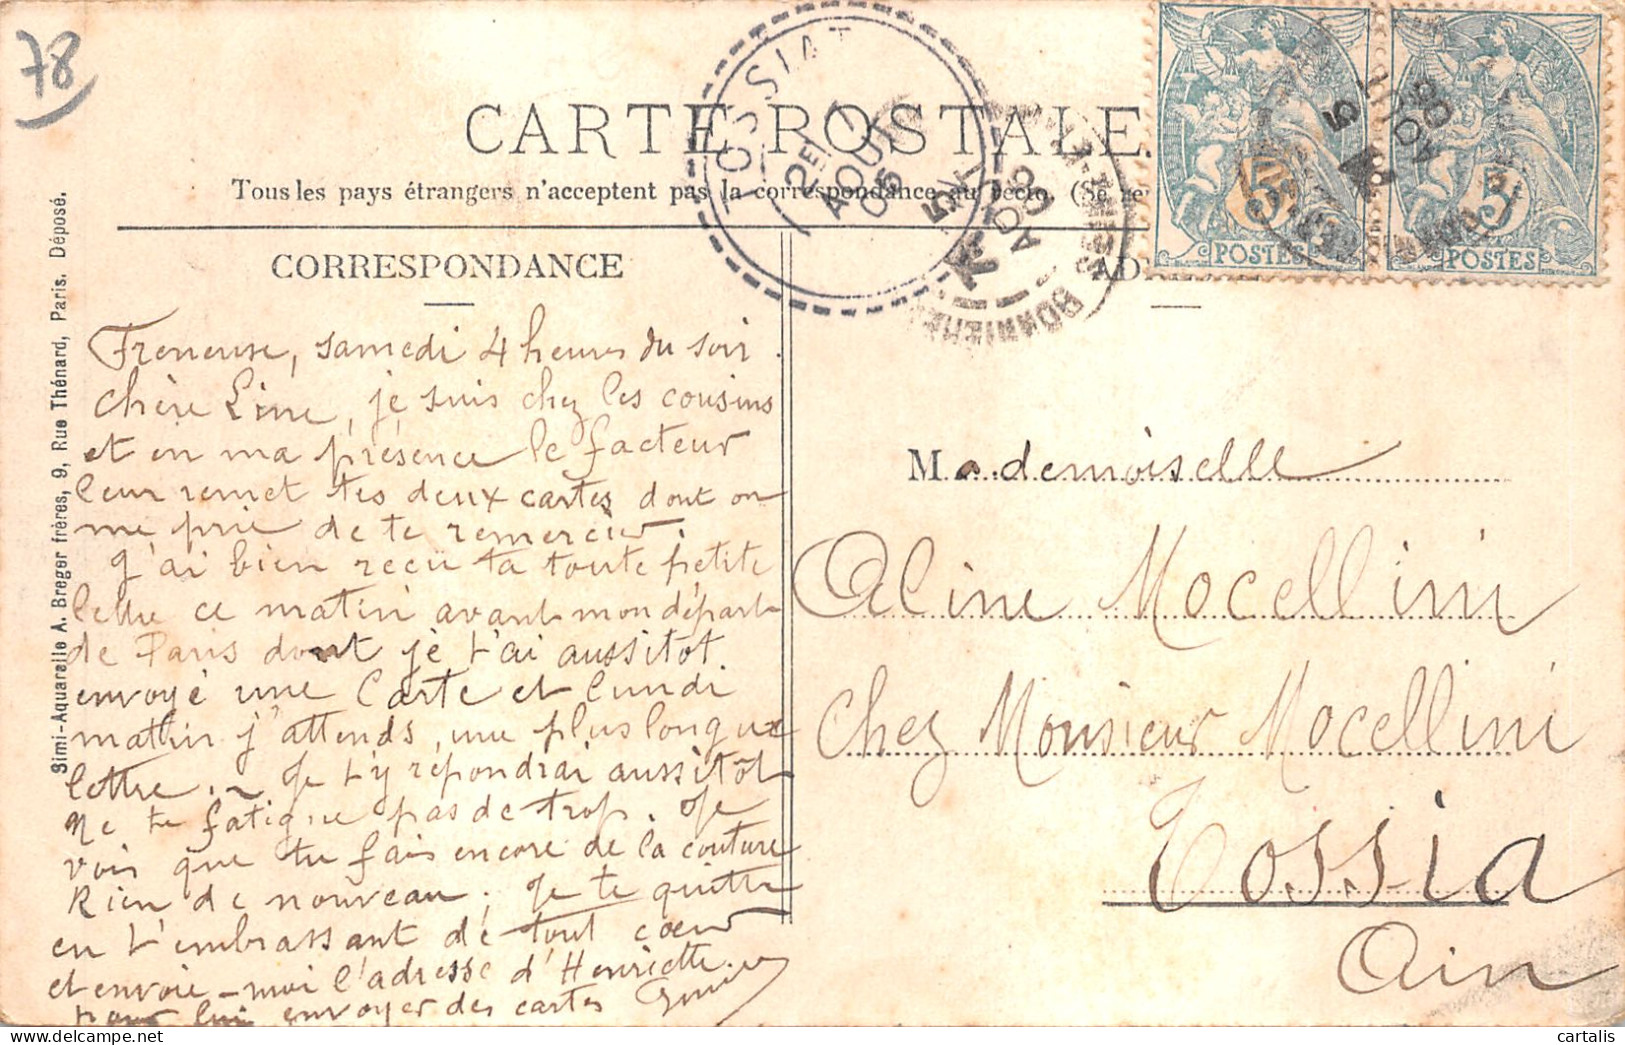 78
CARTE POSTALE
Tous les pays étrangers n'acceptent pas la correspondance au recto. (Se re
TOSSIAT
2E /
AOUT
05
5 /
AOUT
05
BONNIERES
5 /
AOUT
05
5
POSTES
5
POSTES
CORRESPONDANCE
AD
Simi-Aquarelle A. Breger frères, 9, Rue Thénard, Paris. Déposé.
Freneuse, samedi 4 heures du soir.
Chère Line, je suis chez les cousins
et en ma présence le facteur
leur remet tes deux cartes dont on
me prie de te remercier.
J'ai bien reçu ta toute petite
lettre ce matin avant mon départ
de Paris dont je t'ai aussitot
envoyé une Carte et lundi
matin j'attends une plus longue
lettre. Je t'y répondrai aussitôt
Ne te fatigue pas de trop. Je
vois que tu fais encore de la couture
Rien de nouveau. Je te quitte
en t'embrassant de tout coeur
et envoie-moi l'adresse d'Henriette
pour lui envoyer des cartes
Mademoiselle
Aline Mocellini
Chez Monsieur Mocellini
Tossia
Ain
cartalis